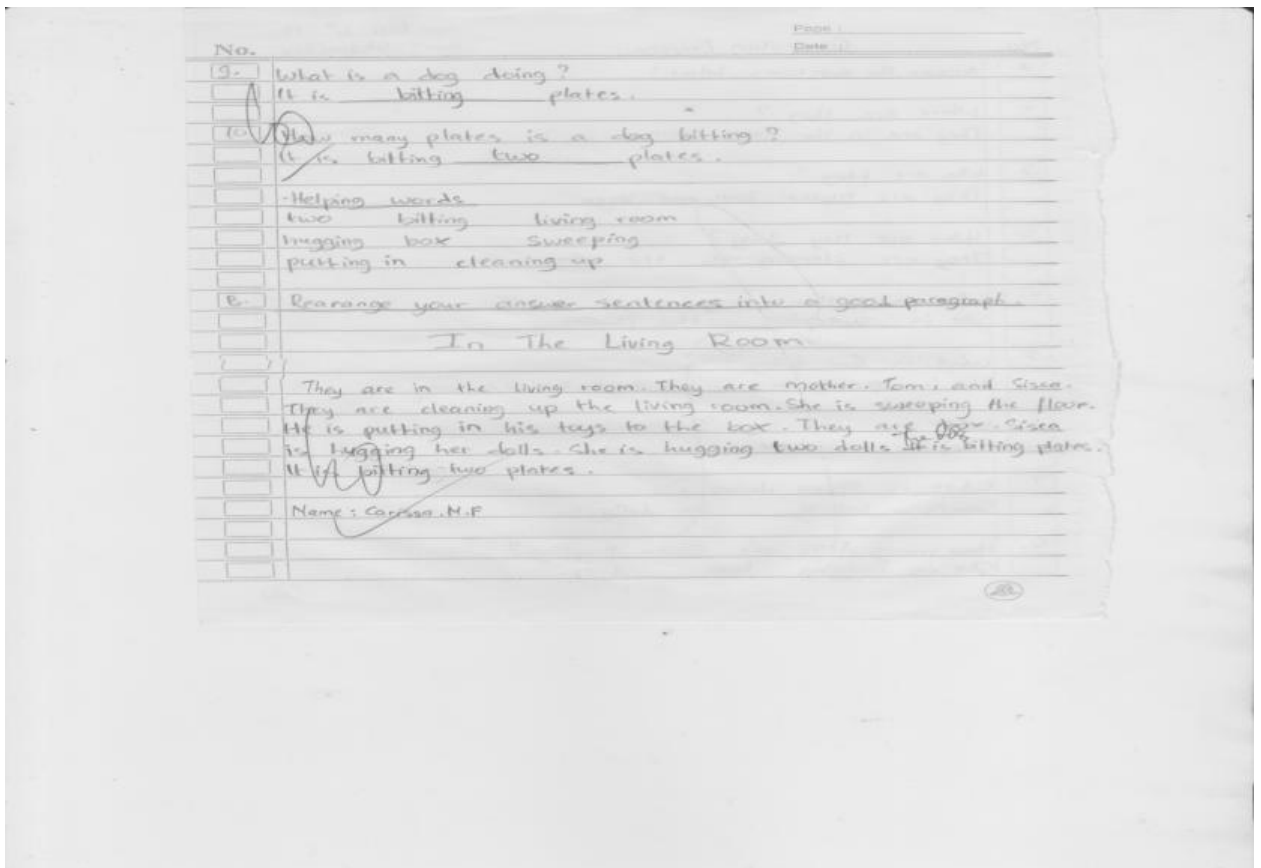 Page :
No. Date :
9. What is a dog doing?
It is bitting plates.
10. How many plates is a dog bitting?
It is bitting two plates.
-Helping words
two bitting living room
hugging box sweeping
putting in cleaning up
B. Rearange your answer sentences into a good paragraph.
In The Living Room
They are in the living room. They are mother, Tom, and Sisca.
They are cleaning up the living room. She is sweeping the floor.
He is putting in his toys to the box. They are Sisca
is hugging her dolls. She is hugging two dolls. It is bitting plates.
It is bitting two plates.
Name : Carissa .M.F